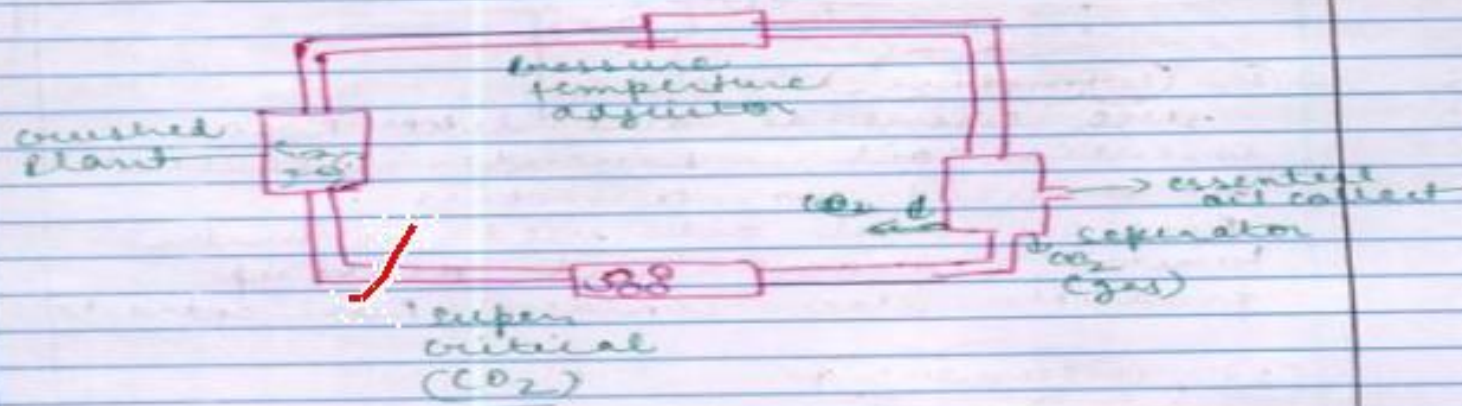 Pressure
temperture
adjustor
crushed
plant
essential
oil collect
CO2
seperator
CO2
(gas)
super
critical
(CO2)